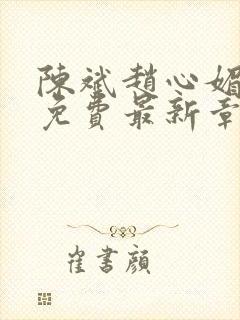 陳斌趙心媚
免費最新章
崔書顔